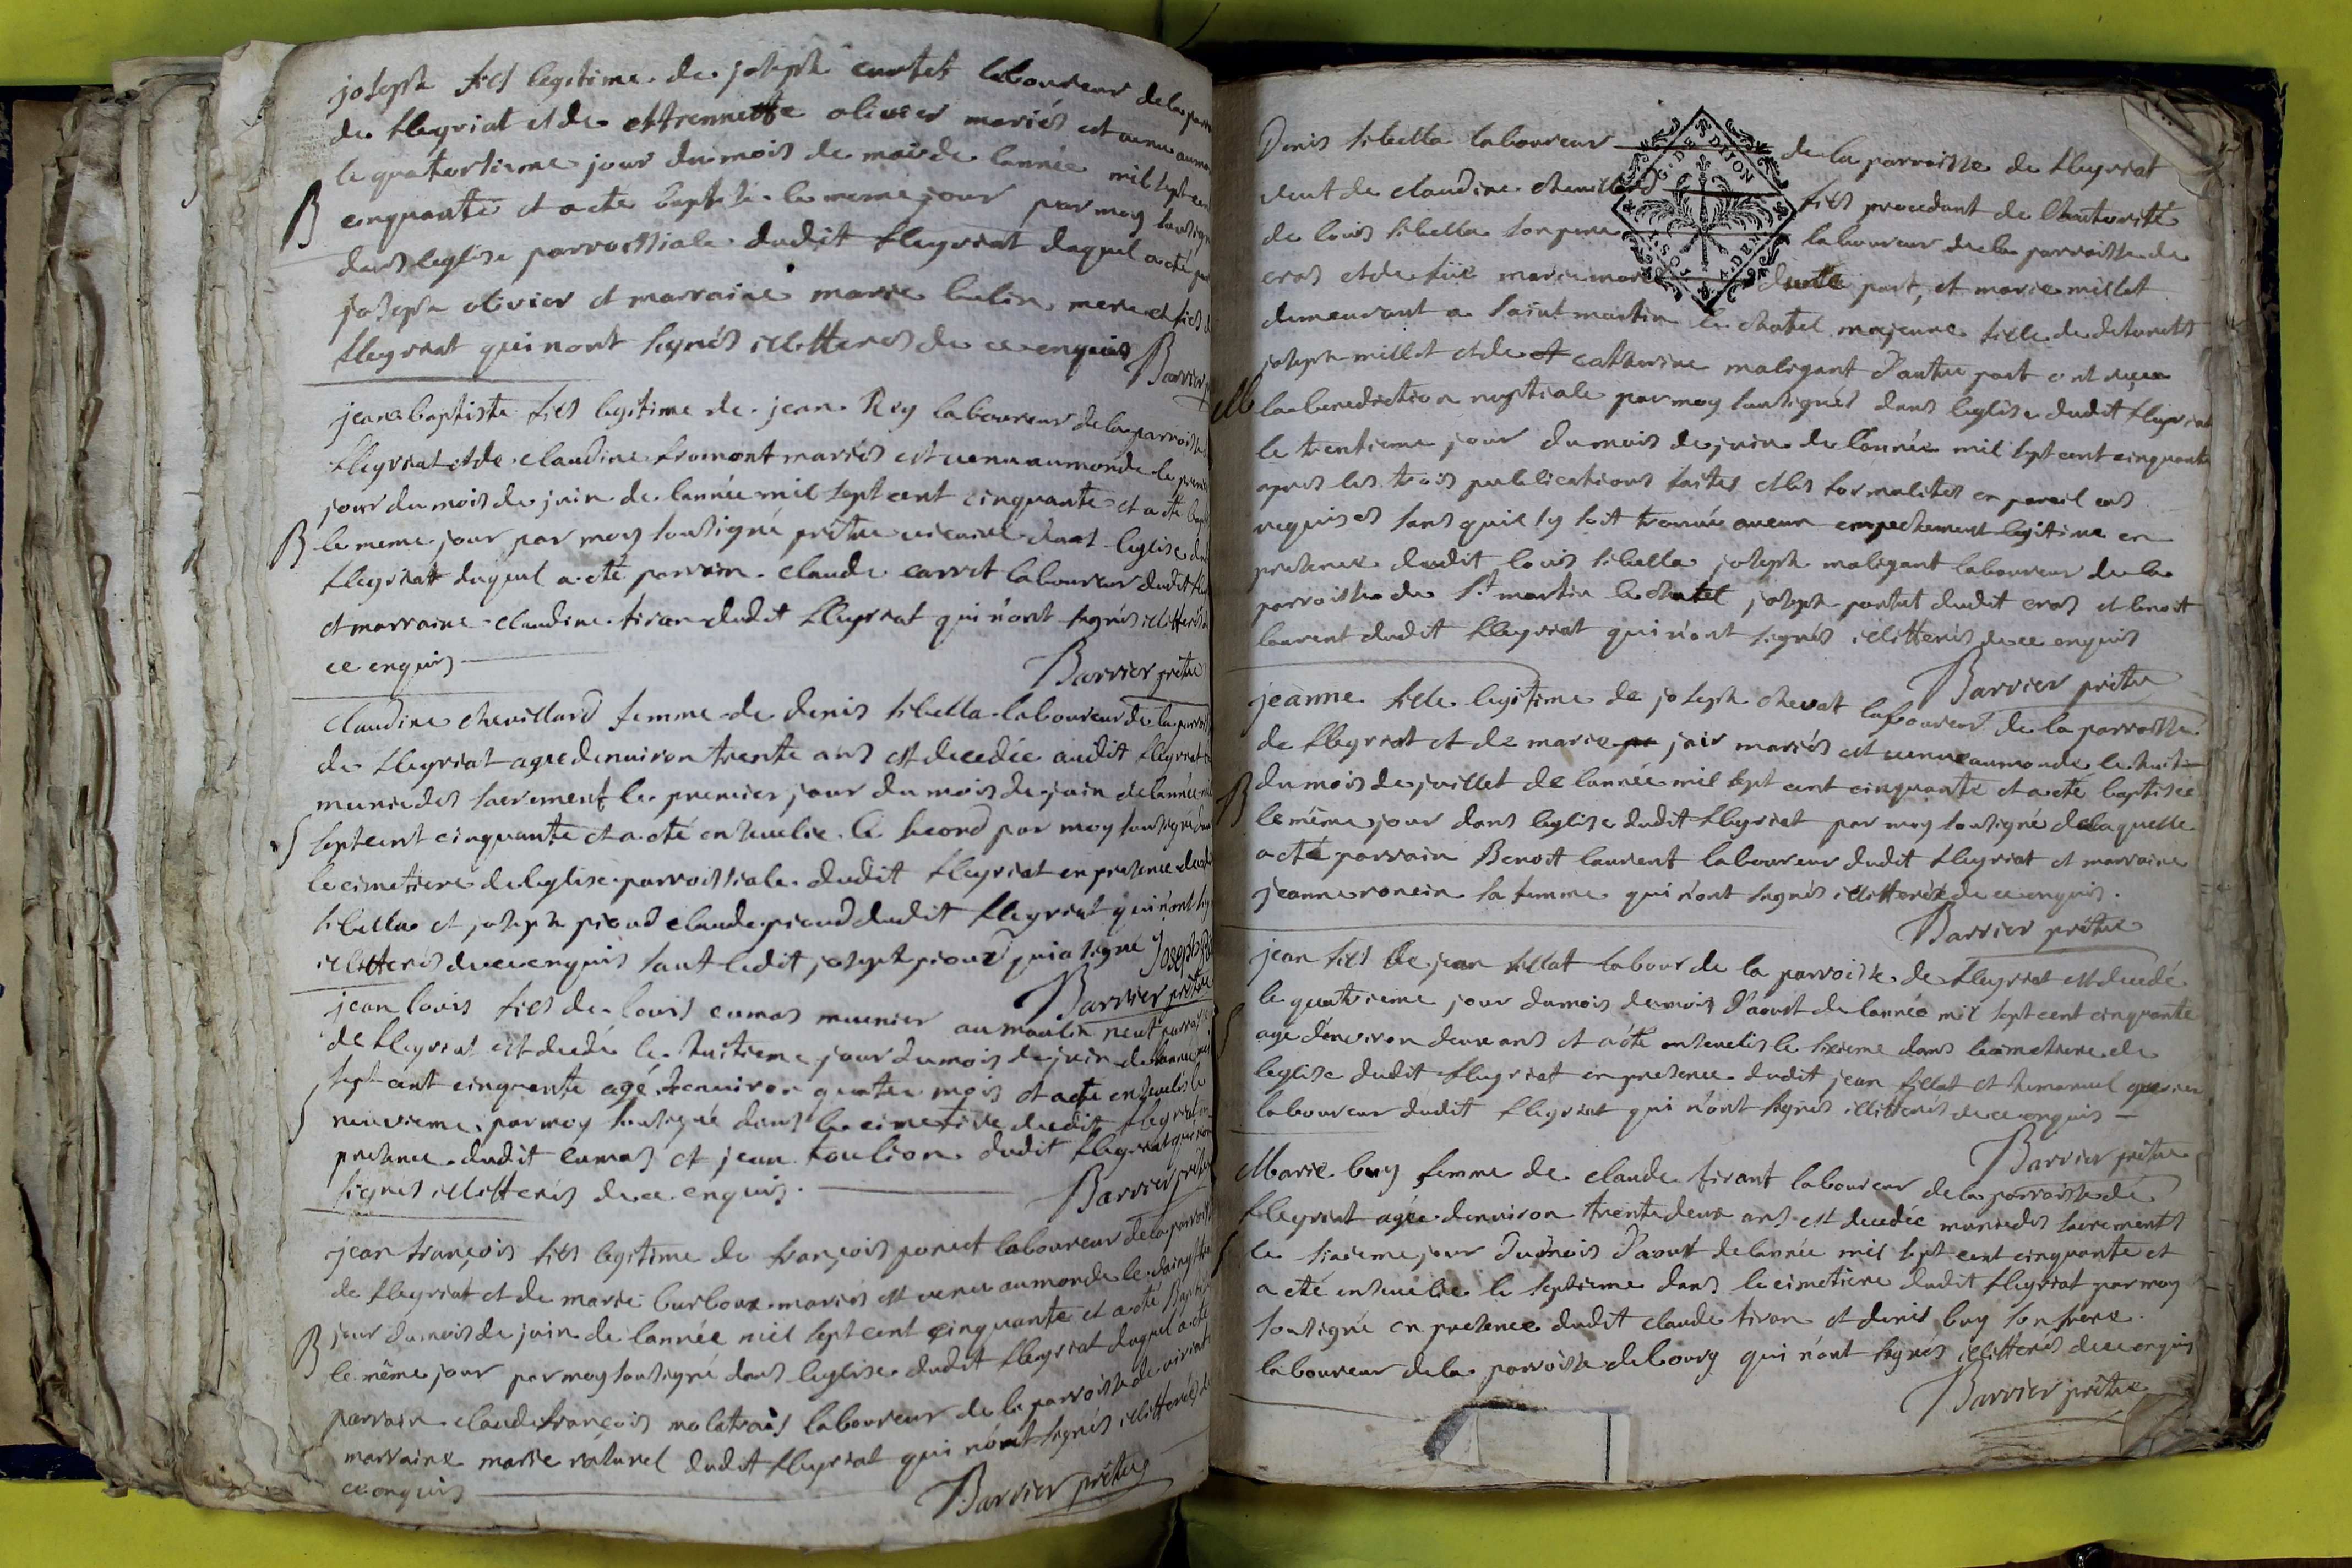 joseph fils legitime de joseph curtet laboureur de la parr
de fleyriat et de ettiennette olivier mariés est venu au mon
le quatorsieme jour du mois de mai de lannée mil sept cen
B
cinquante et a ete baptisé le meme jour par moy sousign
dans leglise parroissiale dudit fleyriat duquel a eté par
joseph olivier et marraine marie bulin mere et fils d
fleyriat qui nont signés illitterés de ce enquis
Barrier p
jean baptiste fils legitime de jean Rey laboureur de la parroisse
fleyriat et de claudine fromont mariés est venu au monde le premie
jour du mois de juin de lannée mil sept cent cinquante et a eté bapt
B
le meme jour par moy sousigné prêtre vicaire dans leglise dud
fleyriat duquel a eté parrain claude carret laboureur dudit fley
et marraine claudine tiran dudit fleyriat qui n'ont signés illitterés d
ce enquis
Barrier prêtre
claudine chevillard femme de denis sibella laboureur de la parroiss
de fleyriat agee denviron trente ans est decedée audit fleyriat
munie des sacrement le premier jour du mois de juin de lannée mil
S
sept cent cinquante et a eté ensevelie le second par moy sousigné dans
le cimetiere de leglise parroissiale dudit fleyriat en presence dudit
sibella et joseph pioud claude pioud dudit fleyriat qui n'ont sig
illitterés de ce enquis sauf ledit joseph pioud qui a signé Joseph
Barrier prêtre
jean louis fils de louis cumas munier au moulin neuf parroisse
de fleyriat est decedé le huitieme jour du mois de juin de lannée mil
sept cent cinquante agé denviron quatre mois et a eté enseveli le
S
neuvieme par moy sousigné dans le cimetiere dudit fleyriat en
presence dudit cumas et jean toulion dudit fleyriat qui n'ont
signés illitterés de ce enquis.
Barrier prêtre
jean françois fils legitime de françois ponect laboureur de la parroisse
de fleyriat et de marie burloux mariés est venu au monde le
B
jour du mois de juin de lannée mil sept cent cinquante et a eté Baptisé
le même jour par moy sousigné dans leglise dudit fleyriat duquel a eté
parrain claude françois molatrais laboureur de la parroisse de viriat
marraine marie naturel dudit fleyriat qui n'ont signés illitterés de
ce enquis
Barrier prêtre
Denis sibella laboureur de la parroisse de fleyriat
veuf de claudine chevillard fils procedant de l'hautorité
de louis sibella son pere laboureur de la parroisse de
cras et de füe marie dune part, et marie millet
demeurant a saint martin le chatel majeure fille de defuncts
joseph millet et de catherine maligant d'autre part ont recu
M
la benediction nuptiale par moy sousigné dans leglise dudit fleyriat
le trentieme jour du mois de juin de lannée mil sept cent cinquante
apres les trois publications faites et les formalites en pareil cas
requises sans qu'il sy soit trouvée aucun empechement legitime en
presence dudit louis sibella joseph maligant laboureur de la
parroisse de St martin le chatel joseph portet dudit cras et benoit
laurent dudit fleyriat qui n'ont signés illitterés de ce enquis
Barrier prêtre
jeanne fille legitime de joseph chevat laboureur de la parroisse
de fleyriat et de marie joir mariés est venue au monde le huit
B
du mois de juillet de lannée mil sept cent cinquante et a eté baptisée
le même jour dans leglise dudit fleyriat par moy sousigné de laquelle
a eté parrain Benoit laurent laboureur dudit fleyriat et marraine
jeanne ronein sa femme qui n'ont signés illitterés de ce enquis.
Barrier prêtre
jean fils de jean fillat labour de la parroisse de fleyriat est decedé
le quatrieme jour du mois de mois d'aoust de lannée mil sept cent cinquante
S
agé denviron deux ans et a eté ensevelis le sixieme dans le cimetiere de
leglise dudit fleyriat en presence dudit jean fillat et humanuel
laboureur dudit fleyriat qui n'ont signés illitterés de ce enquis
Barrier prêtre
Marie buy femme de claude tirant laboureur de la parroisse de
fleyriat agée denviron trente deux ans est decedée munie des sacrements
S
le sixieme jour du mois d'aoust de lannée mil sept cent cinquante et
a eté ensevelie le septieme dans le cimetiere dudit fleyriat par moy
sousigné en presence dudit claude tiran et denis buy son frere
laboureur de la parroisse de bourg qui n'ont signés illitterés de ce enquis
Barrier prêtre